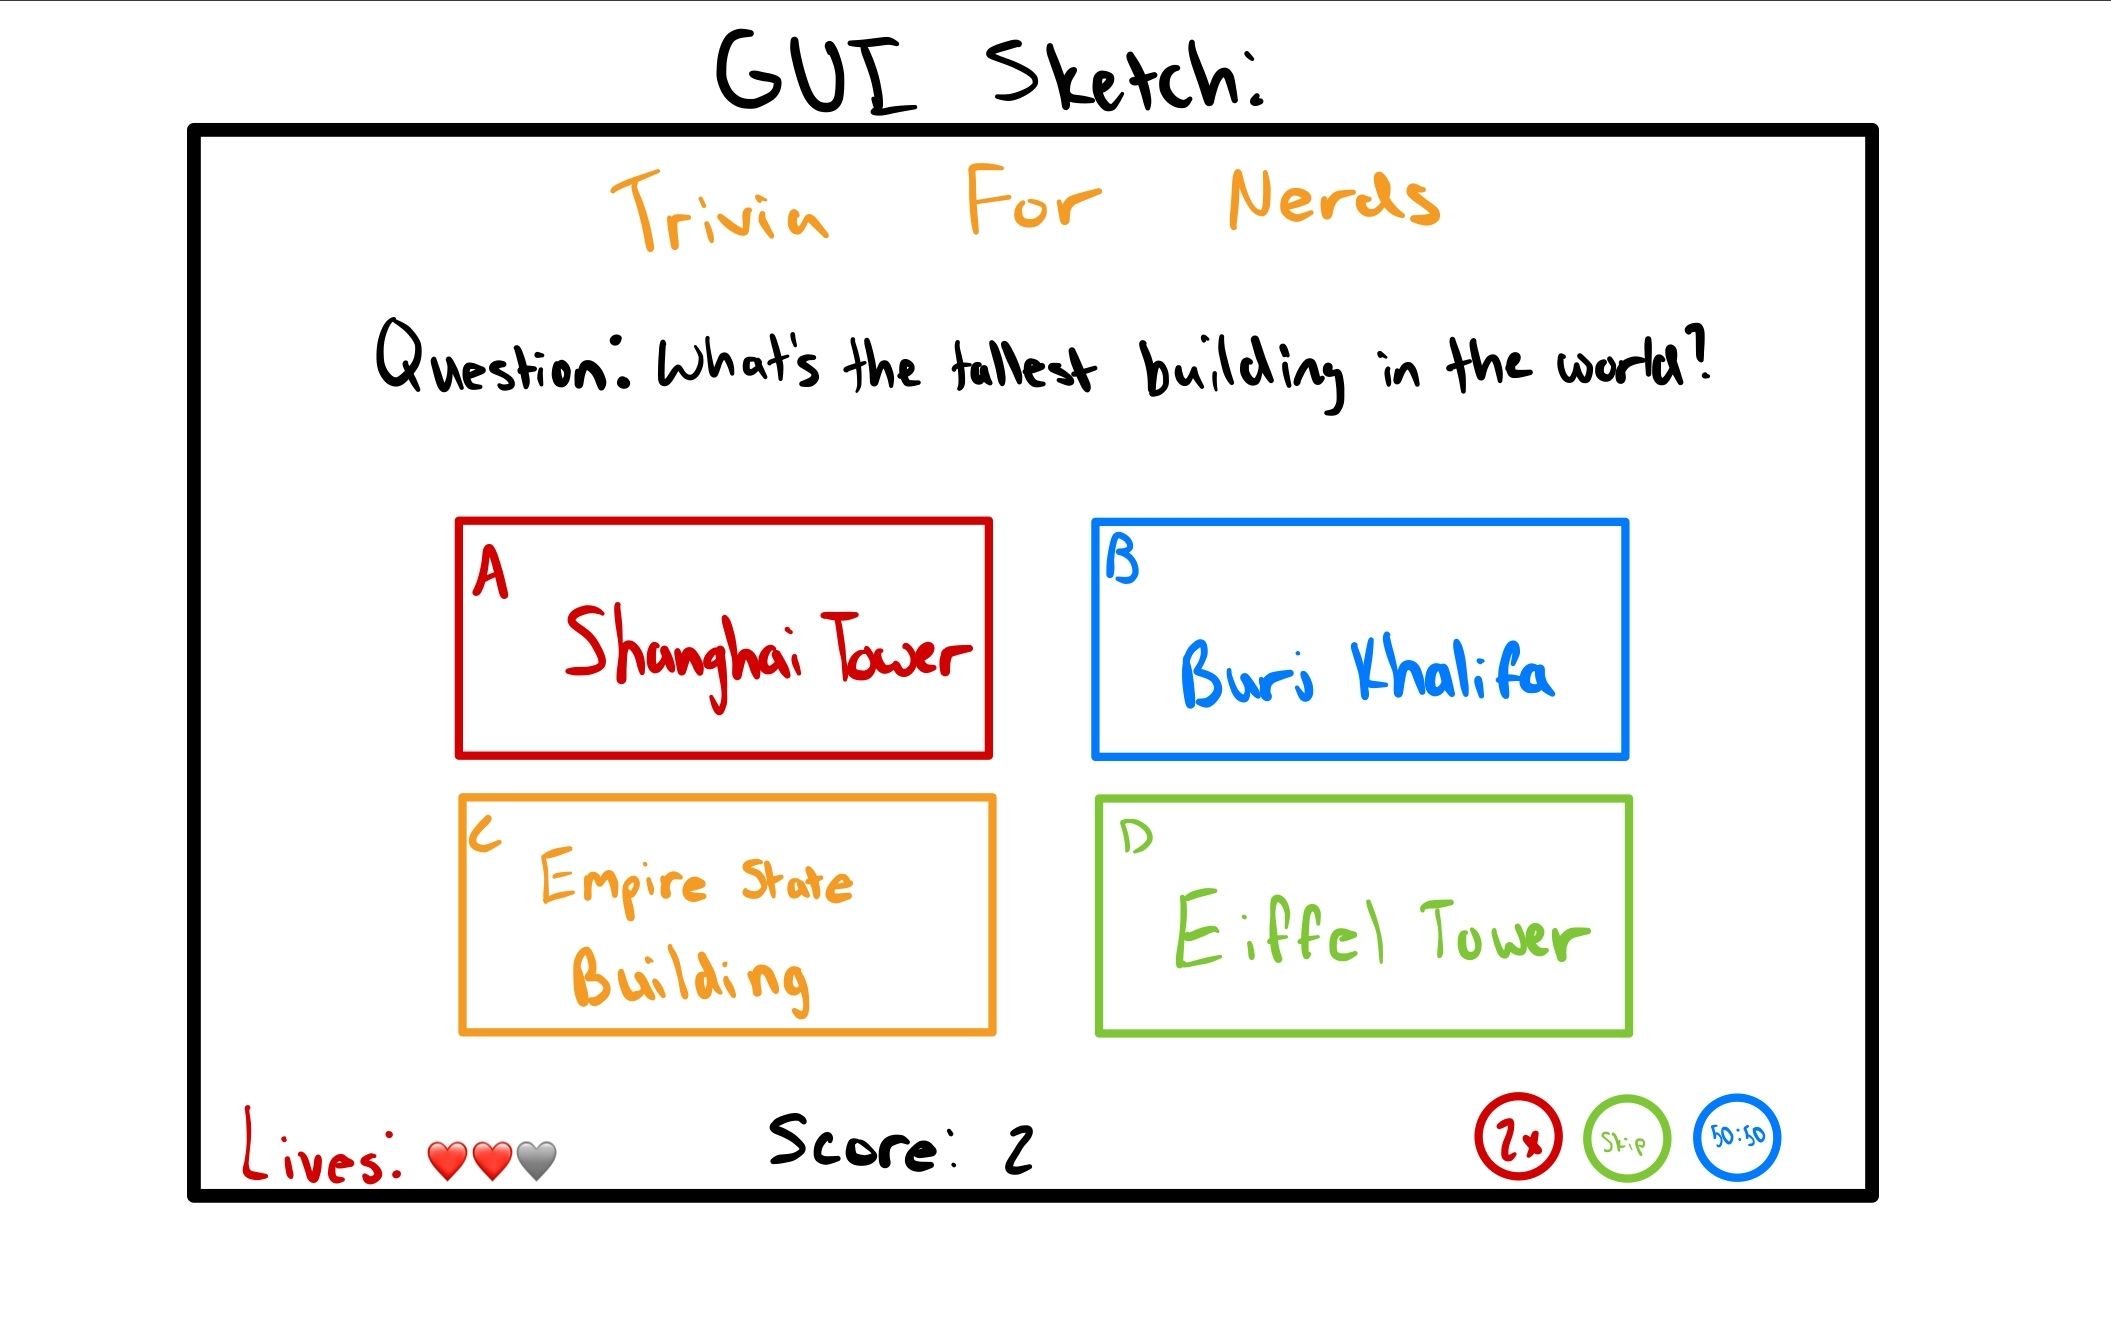 GUI Sketch:
Trivia For Nerds
Question: What's the tallest building in the world?
A
Shanghai Tower
B
Burj Khalifa
C
Empire State
Building
D
Eiffel Tower
Lives: ❤️❤️🩶
Score: 2
2x
Skip
50:50